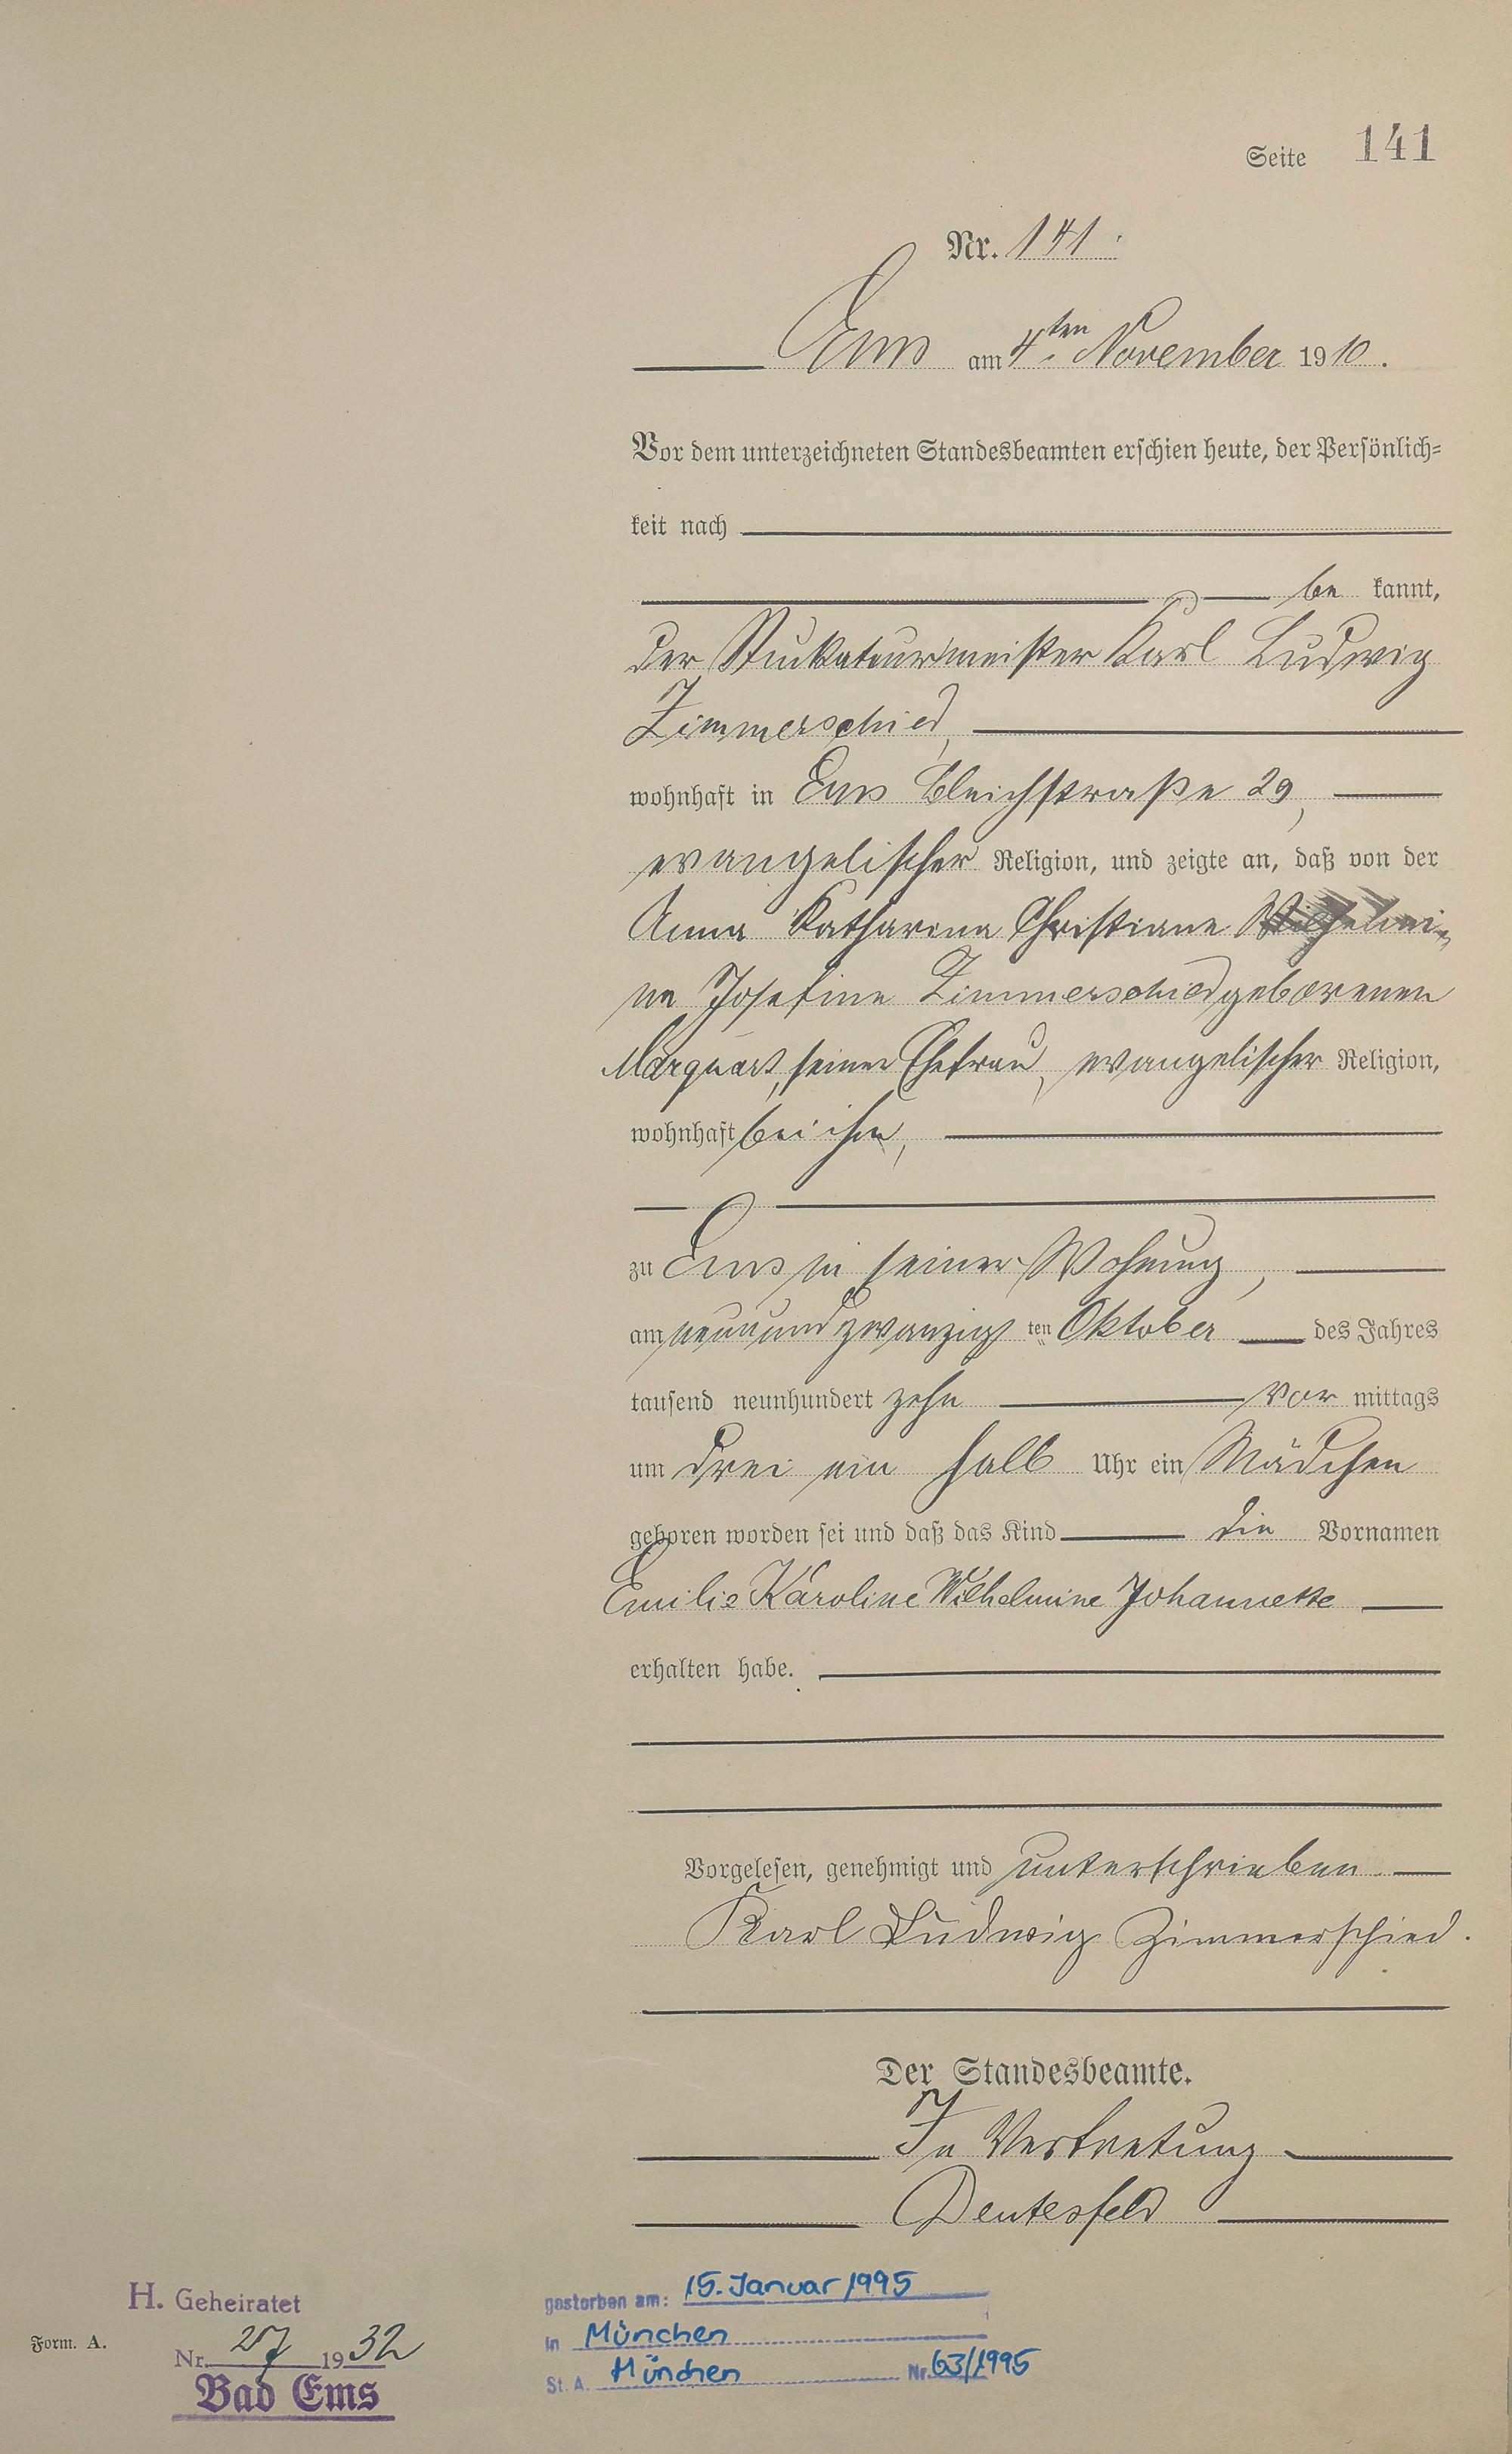 Seite 141
Nr. 141.
Ems am 4ten November 1910.
Vor dem unterzeichneten Standesbeamten erschien heute, der Persönlich=
keit nach
be kannt,
der Stukateurmeister Karl Ludwig
Zimmerschied,
wohnhaft in Ems Bleichstraße 29,
evangelischer Religion, und zeigte an, daß von der
Anna Katharina Christiane Wilhelmi=
ne Josefine Zimmerschied geborenen
Marquart, seiner Ehefrau, evangelischer Religion,
wohnhaft bei ihm,
zu Ems in seiner Wohnung,
am neunundzwanzig ten Oktober des Jahres
tausend neunhundert zehn vor mittags
um drei ein halb Uhr ein Mädchen
geboren worden sei und daß das Kind die Vornamen
Emilie Karoline Wilhelmine Johannette
erhalten habe.
Vorgelesen, genehmigt und unterschrieben
Karl Ludwig Zimmerschied.
Der Standesbeamte.
In Vertretung
Deutesfeld
H. Geheiratet
Nr. 27 1932
Bad Ems
Form. A.
gestorben am: 15. Januar 1995
in München
St. A. München Nr. 63/1995